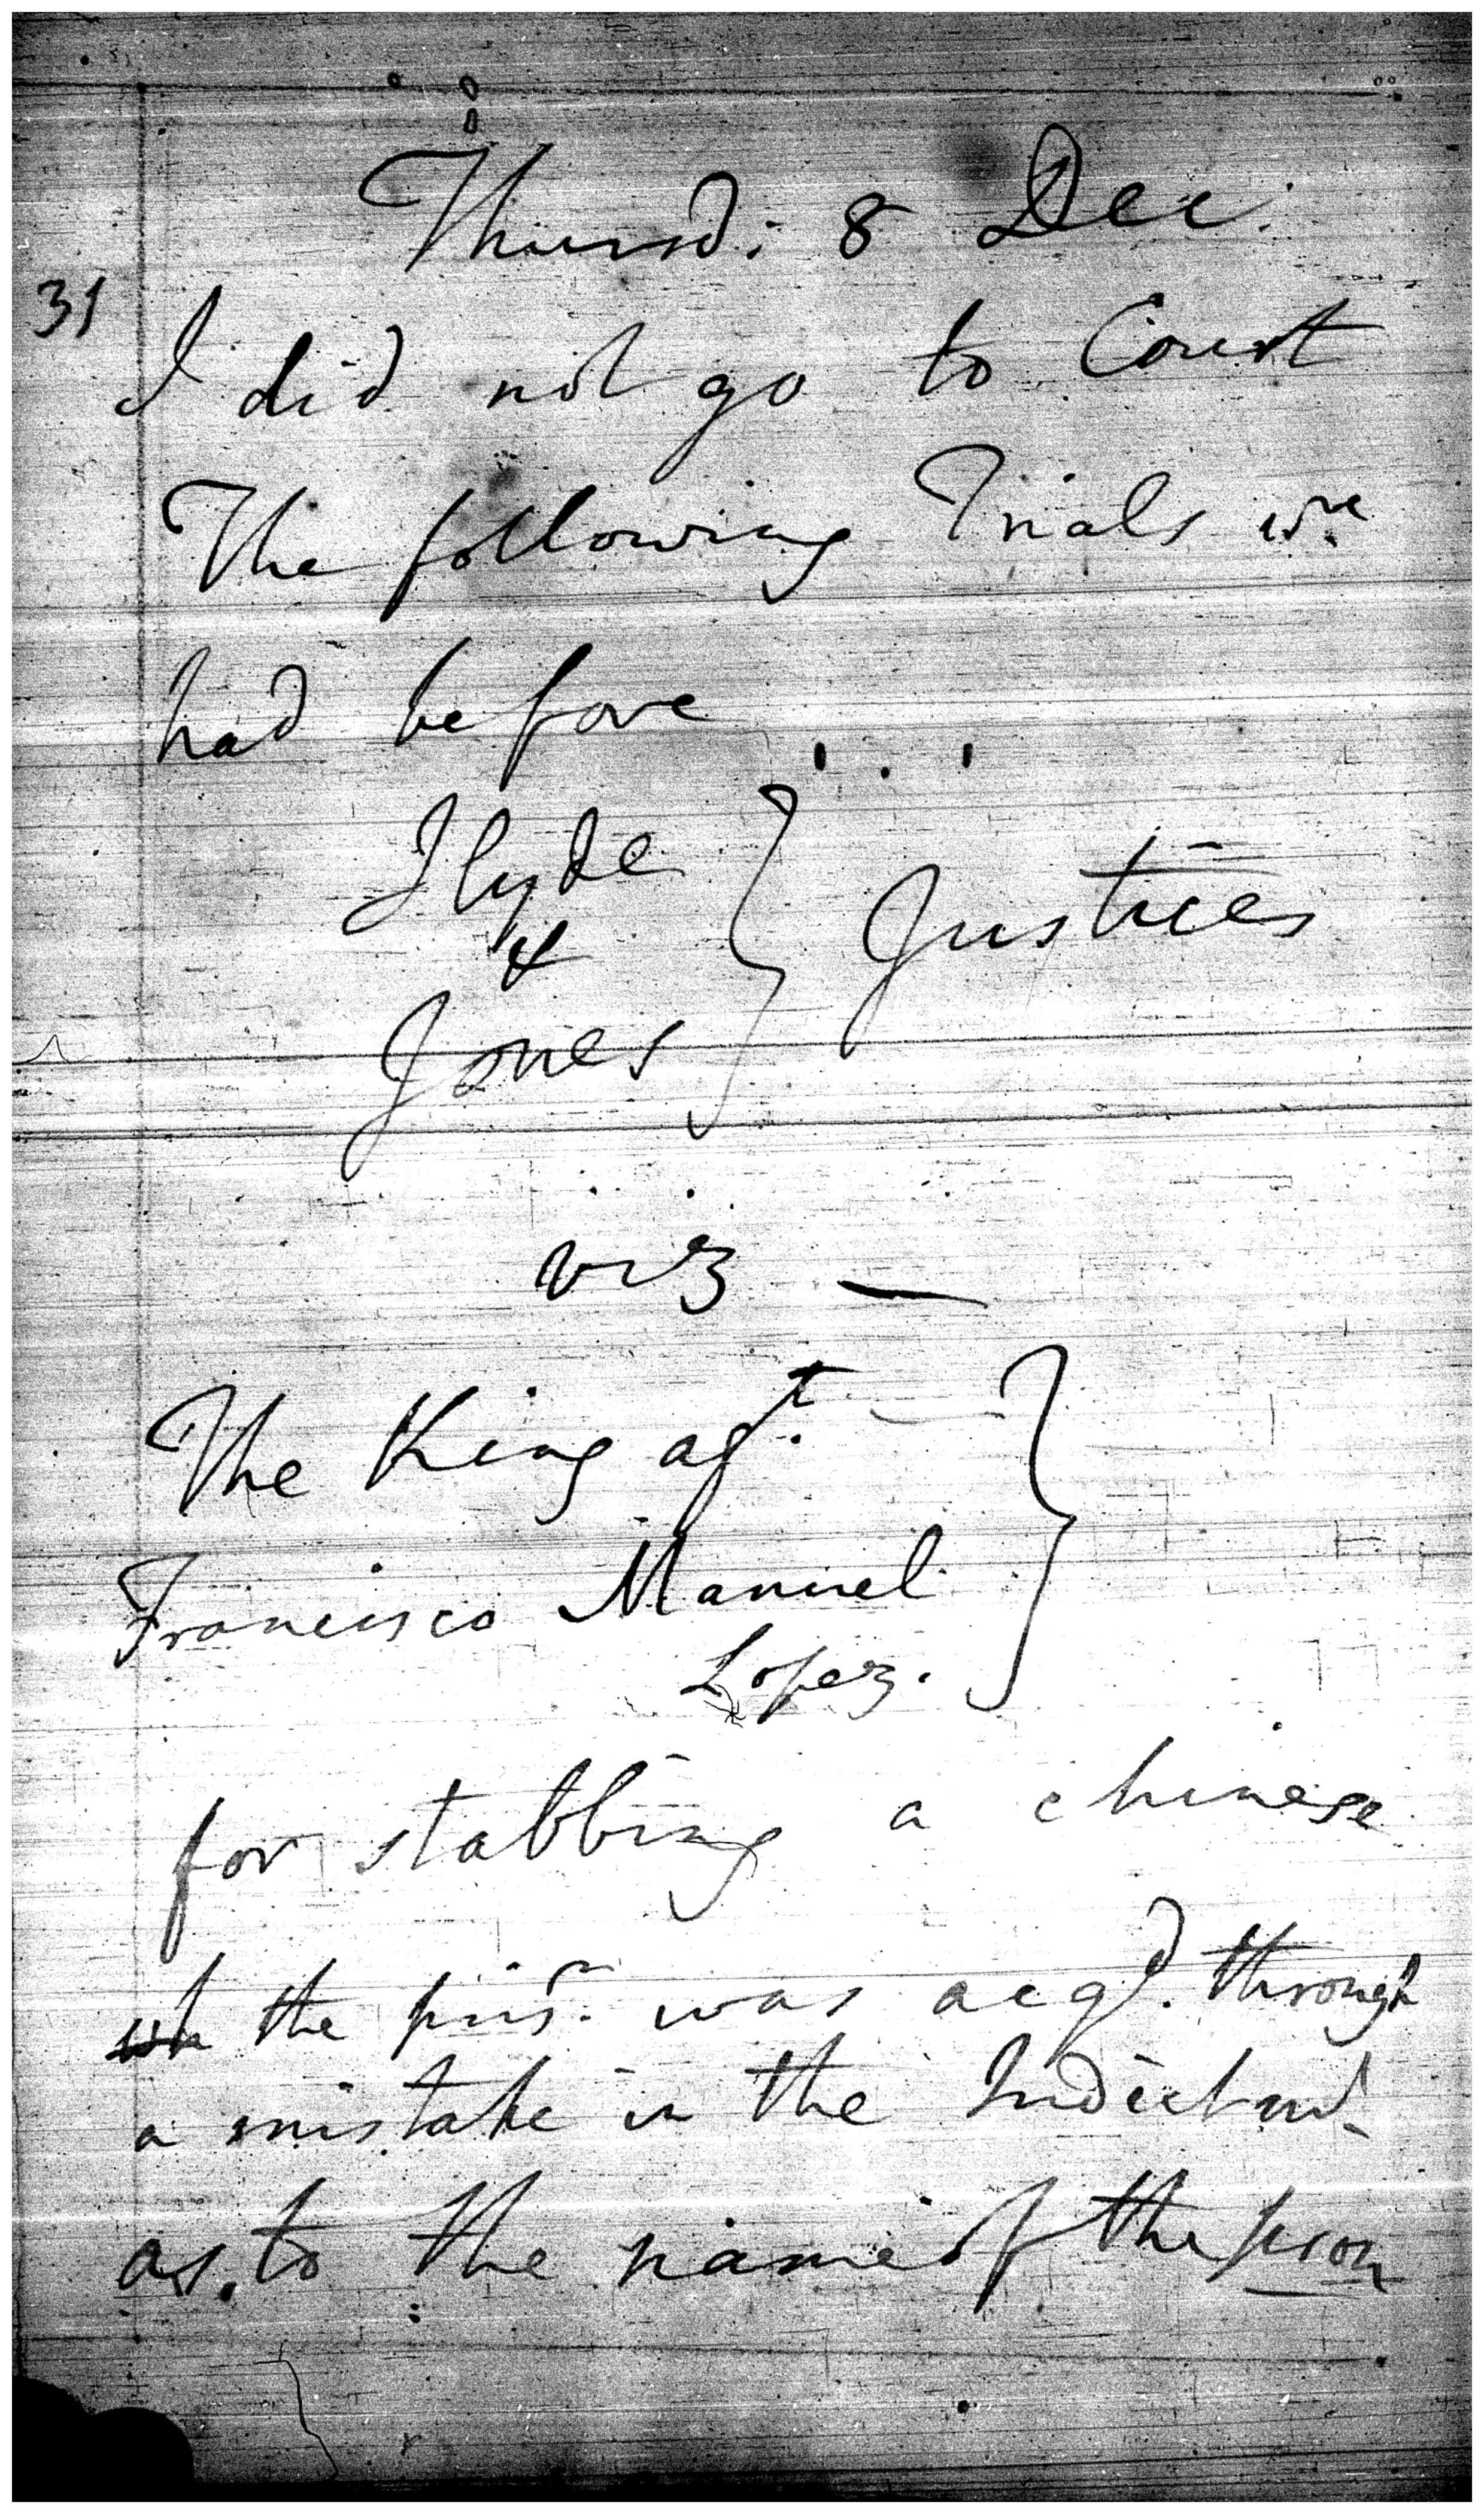 Thursd: 8 Dec.
31
I did not go to Court
The following Trials wre
had before
Hyde
&
Jones } Justices
viz —
The King agt.
Francisco Manuel
Lopez.
for stabbing a chinese
the prisr. was acqd. through
a mistake in the Indictmt.
as to the name of the pson